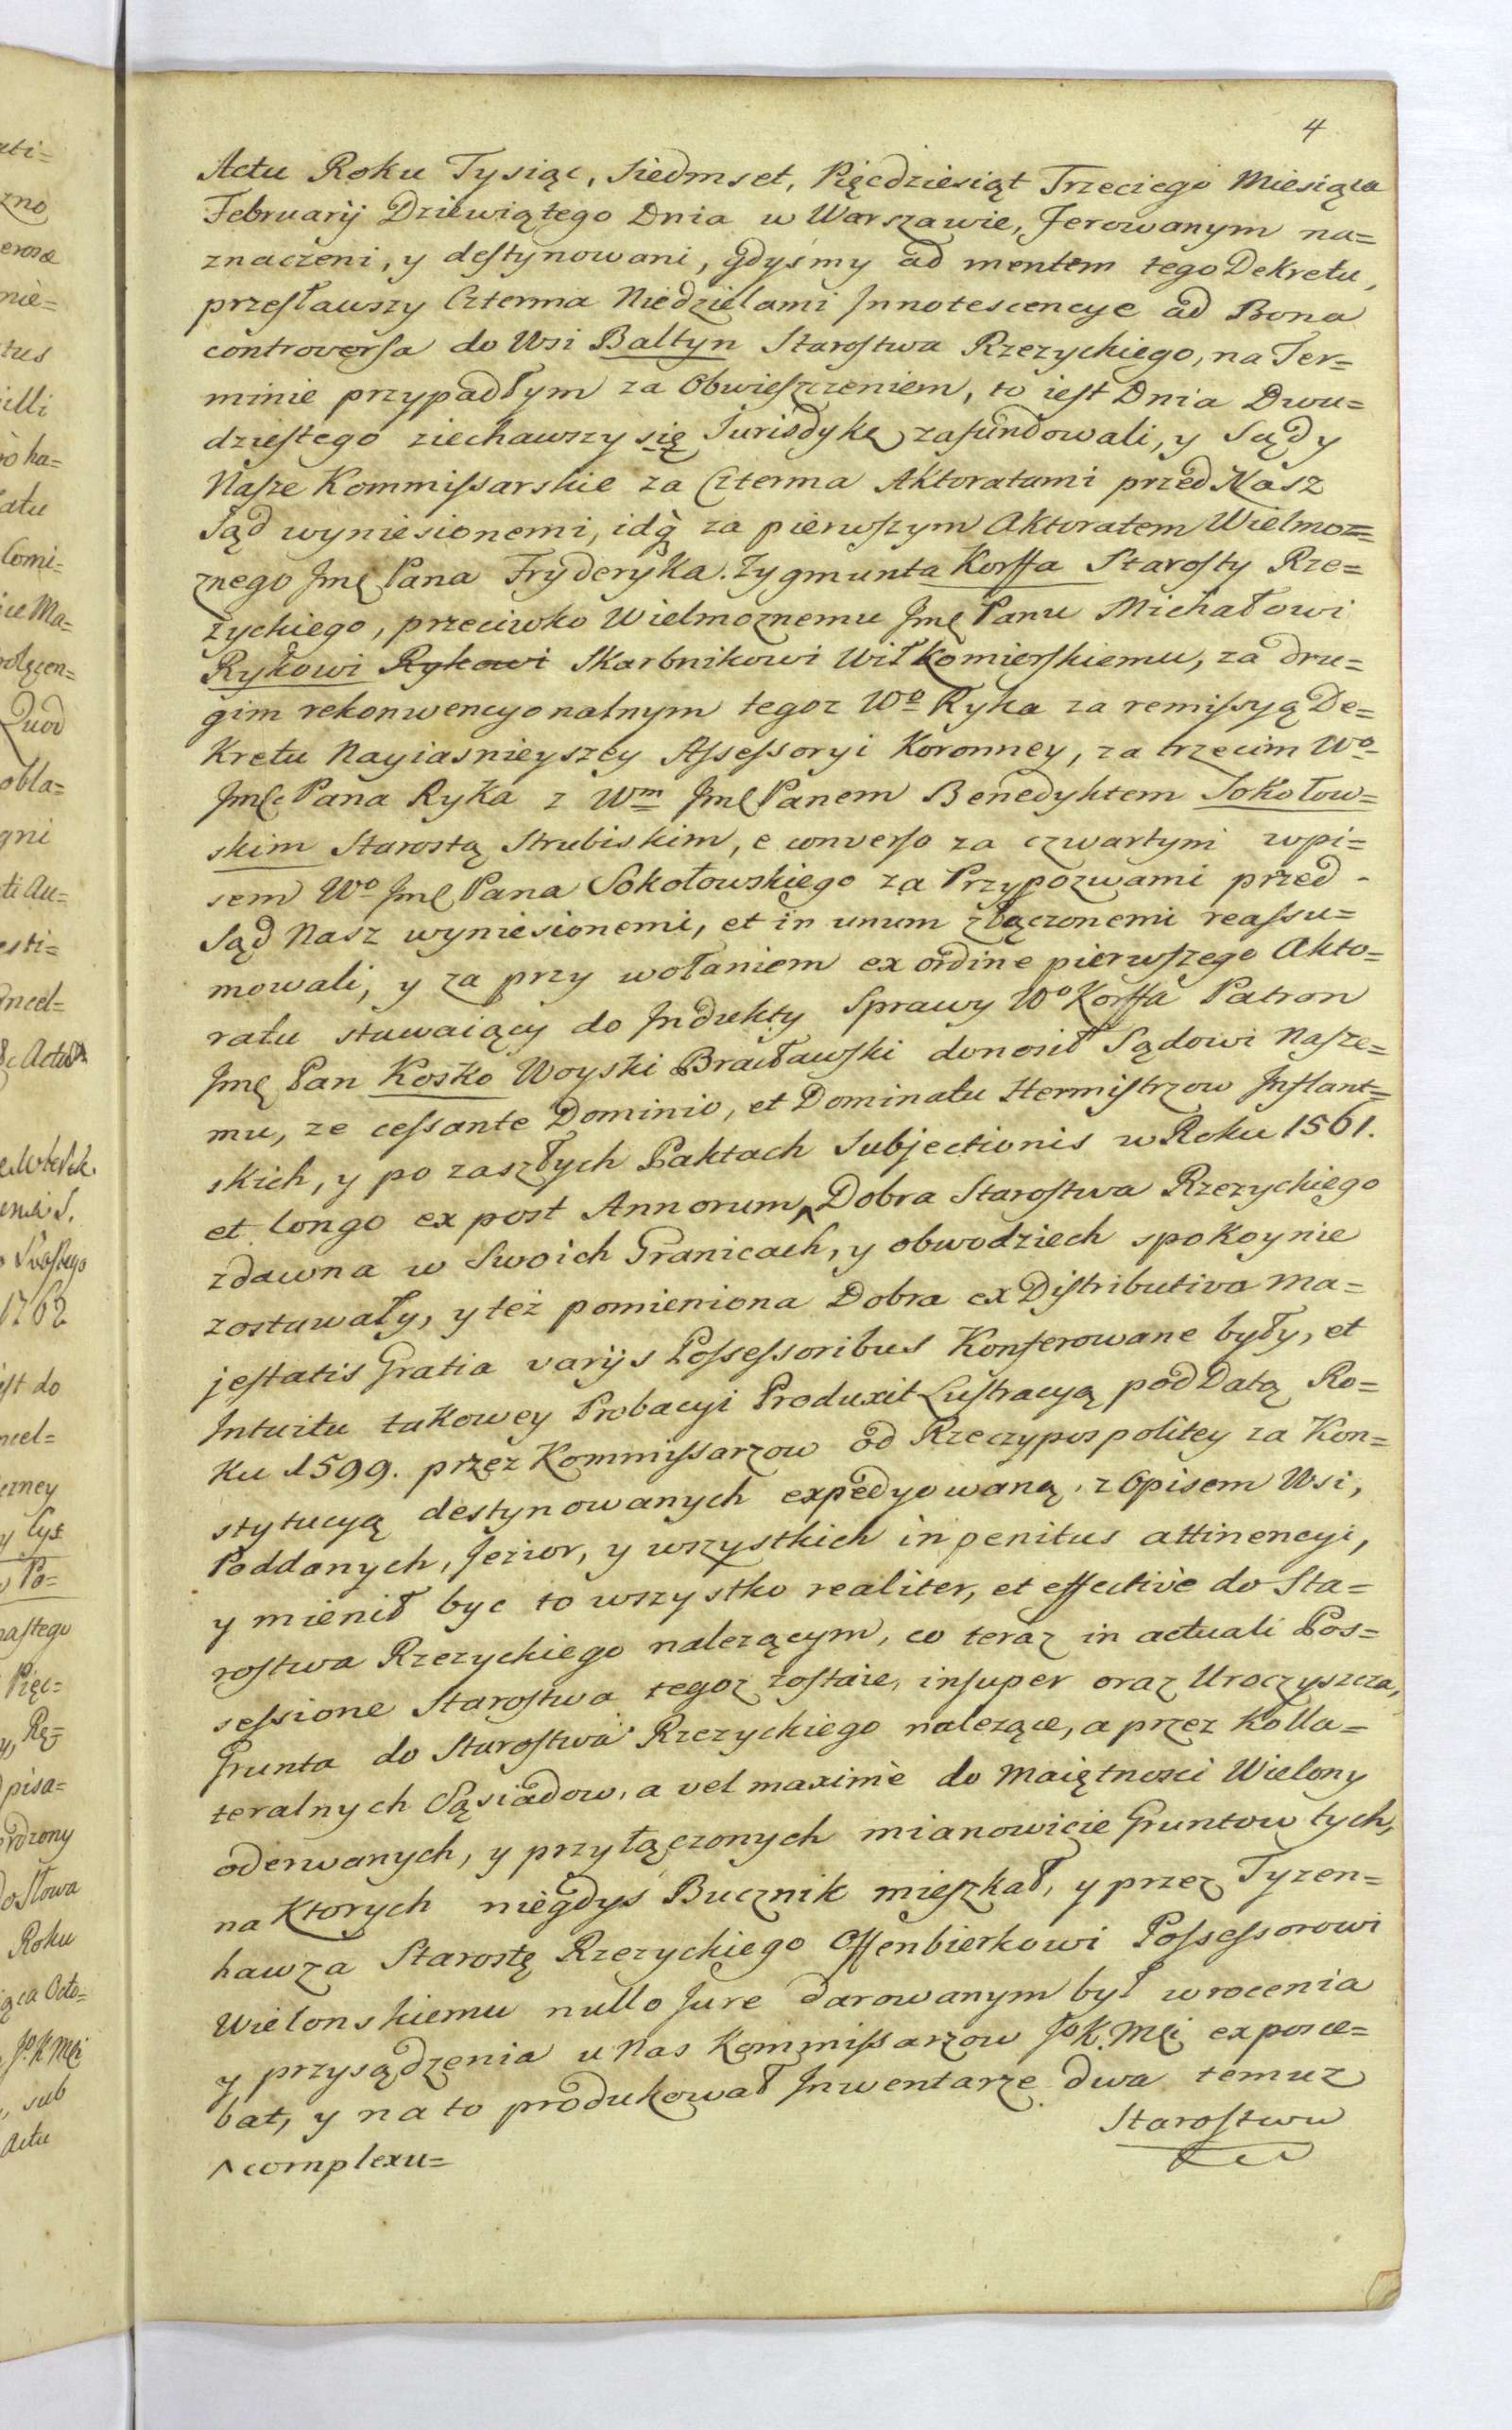 4
Actu Roku Tysiąc, Siedmset, Pięcdziesiąt Trzeciego Miesiąca
Februarij Dziewiątego Dnia w Warszawie, Ferowanym na=
znaczeni, y destynowani, gdyśmy ad mentem tego Dekretu,
przesławszy Czterma Niedzielami Innotescencye ad Bona
controversa do Wsi Baltyn Starostwa Rzezyckiego, na Ter=
minie przypadłym za Obwieszczeniem, to iest Dnia Dwu=
dziestego ziechawszy się Jurisdykę zafundowali, y Sądy
Nasze Kommissarskie za Czterma Aktoratami przed Nasz
Sąd wyniesionemi, idą za pierwszym Aktoratem Wielmoz=
znego Jmę Pana Fryderyka Zygmunta Korffa Starosty Rze=
życkiego, przeciwko Wielmoznemu Jmę Panu Michałowi
Rykowi Rykowi Skarbnikowi Wiłkomierskiemu, za dru=
gim rekonwencyonalnym tegoz Wo Ryka za remissyą De=
Kretu Nayiasnieyszey Assessoryi Koronney, za trzecim Wo
Jmę Pana Ryka z Wm Jmę Panem Benedyktem Sokołow=
skim Starostą Strubiskim, e converso za czwartym wpi=
sem Wo Jmę Pana Sokołowskiego za Przypozwami przed
Sąd Nasz wyniesionemi, et in unum złączonemi reassu=
mowali, y za przy wołaniem ex ordine pierwszego Akto=
ratu stawaiący do Indukty Sprawy Wo Korffa Patron
Jmę Pan Kosko Woyski Bracławski donosił Sądowi Nasze=
mu, ze cessante Dominio, et Dominatu Hermistrzow Inflant=
skich, y po zaszłych Paktach Subjectionis w Roku 1561.
et longo ex post Annorum ^ Dobra Starostwa Rzezyckiego
zdawna w Swoich Granicach, y obwodziech spokoynie
zostawały, y też pomieniona Dobra ex Distributiva Ma=
jestatis Gratia varijs Possessoribus Konferowane były, et
Intuitu takowey Probacyi Produxit Lustracyą pod Datą Ro=
Ku 1599. przez Kommissarzow od Rzeczypospolitey za Kon=
stytucyą destynowanych expedyowaną, z Opisem Wsi,
Poddanych, Jezior, y wszystkich in penitus attinencyi,
y mienił byc to wszystko realiter, et effectivè do Sta=
rostwa Rzezyckiego nalezącym, co teraz in actuali Pos=
sessione Starostwa tegoz zostaie, insuper oraz Uroczyszcza,
Grunta do Starostwa Rzezyckiego nalezące, a przez Kolla=
teralnych Sąsiadow, a vel maximè do Maiętnosci Wielony
oderwanych, y przyłączonych mianowicie Gruntow tych,
na Ktorych niegdyś Bucznik mieszkał, y przez Tyzen=
hawza Starostę Rzezyckiego Offenbierkowi Possessorowi
Wielonskiemu nullo Jure darowanym był wrocenia
y przysądzenia u Nas Kommissarzow Jo K. Mci exposce=
bat, y na to produkował Inwentarze dwa temuz
Starostwu
^ complexu=